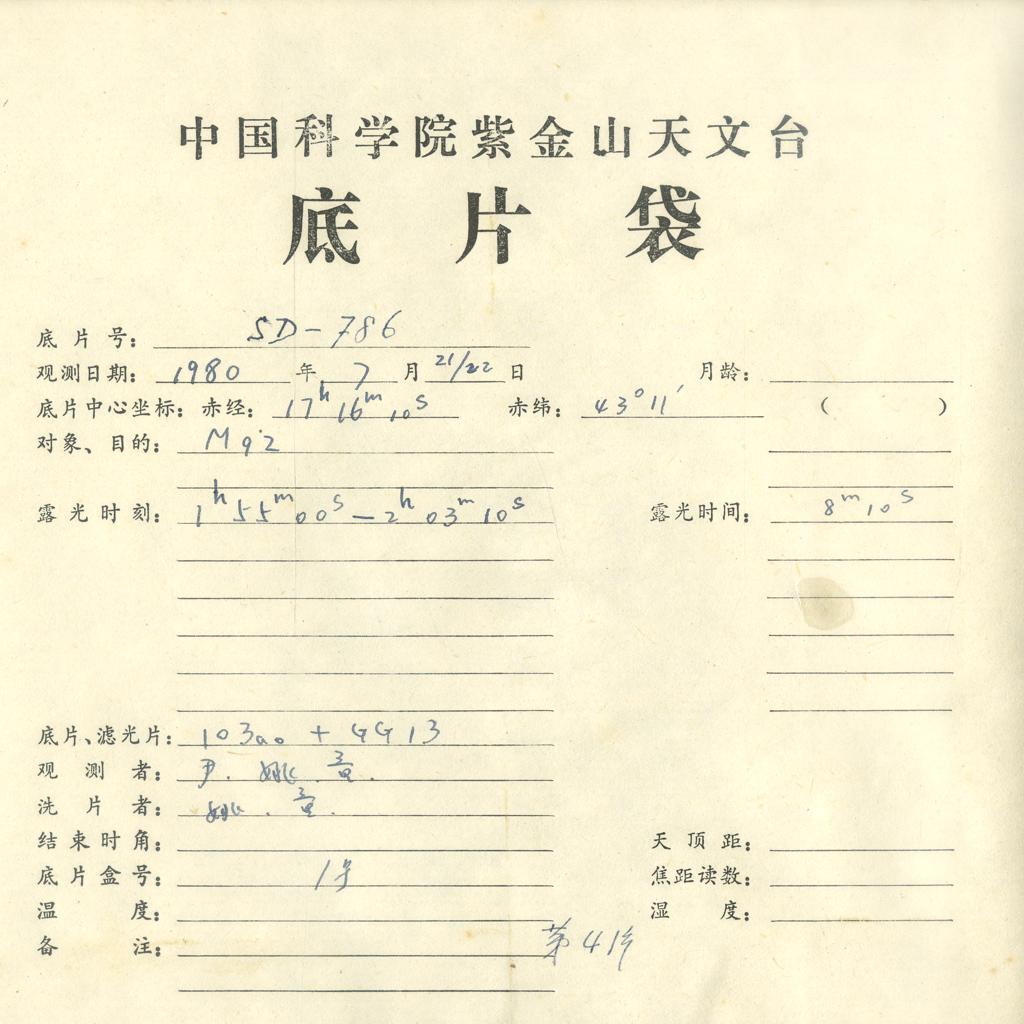 中国科学院紫金山天文台
底片袋
底片号: SD-786
观测日期: 1980 年 7 月 21/22 日 月龄:
底片中心坐标: 赤经: 17h 16m 10s 赤纬: 43°11′ ( )
对象、目的: M92
露光时刻: 1h 55m 00s — 2h 03m 10s 露光时间: 8m 10s
底片、滤光片: 103ao + GG13
观测者: 尹. 姚. 童.
洗片者: 姚. 童.
结束时角: 天顶距:
底片盒号: 1号 焦距读数:
温度: 湿度:
备注: 第4片